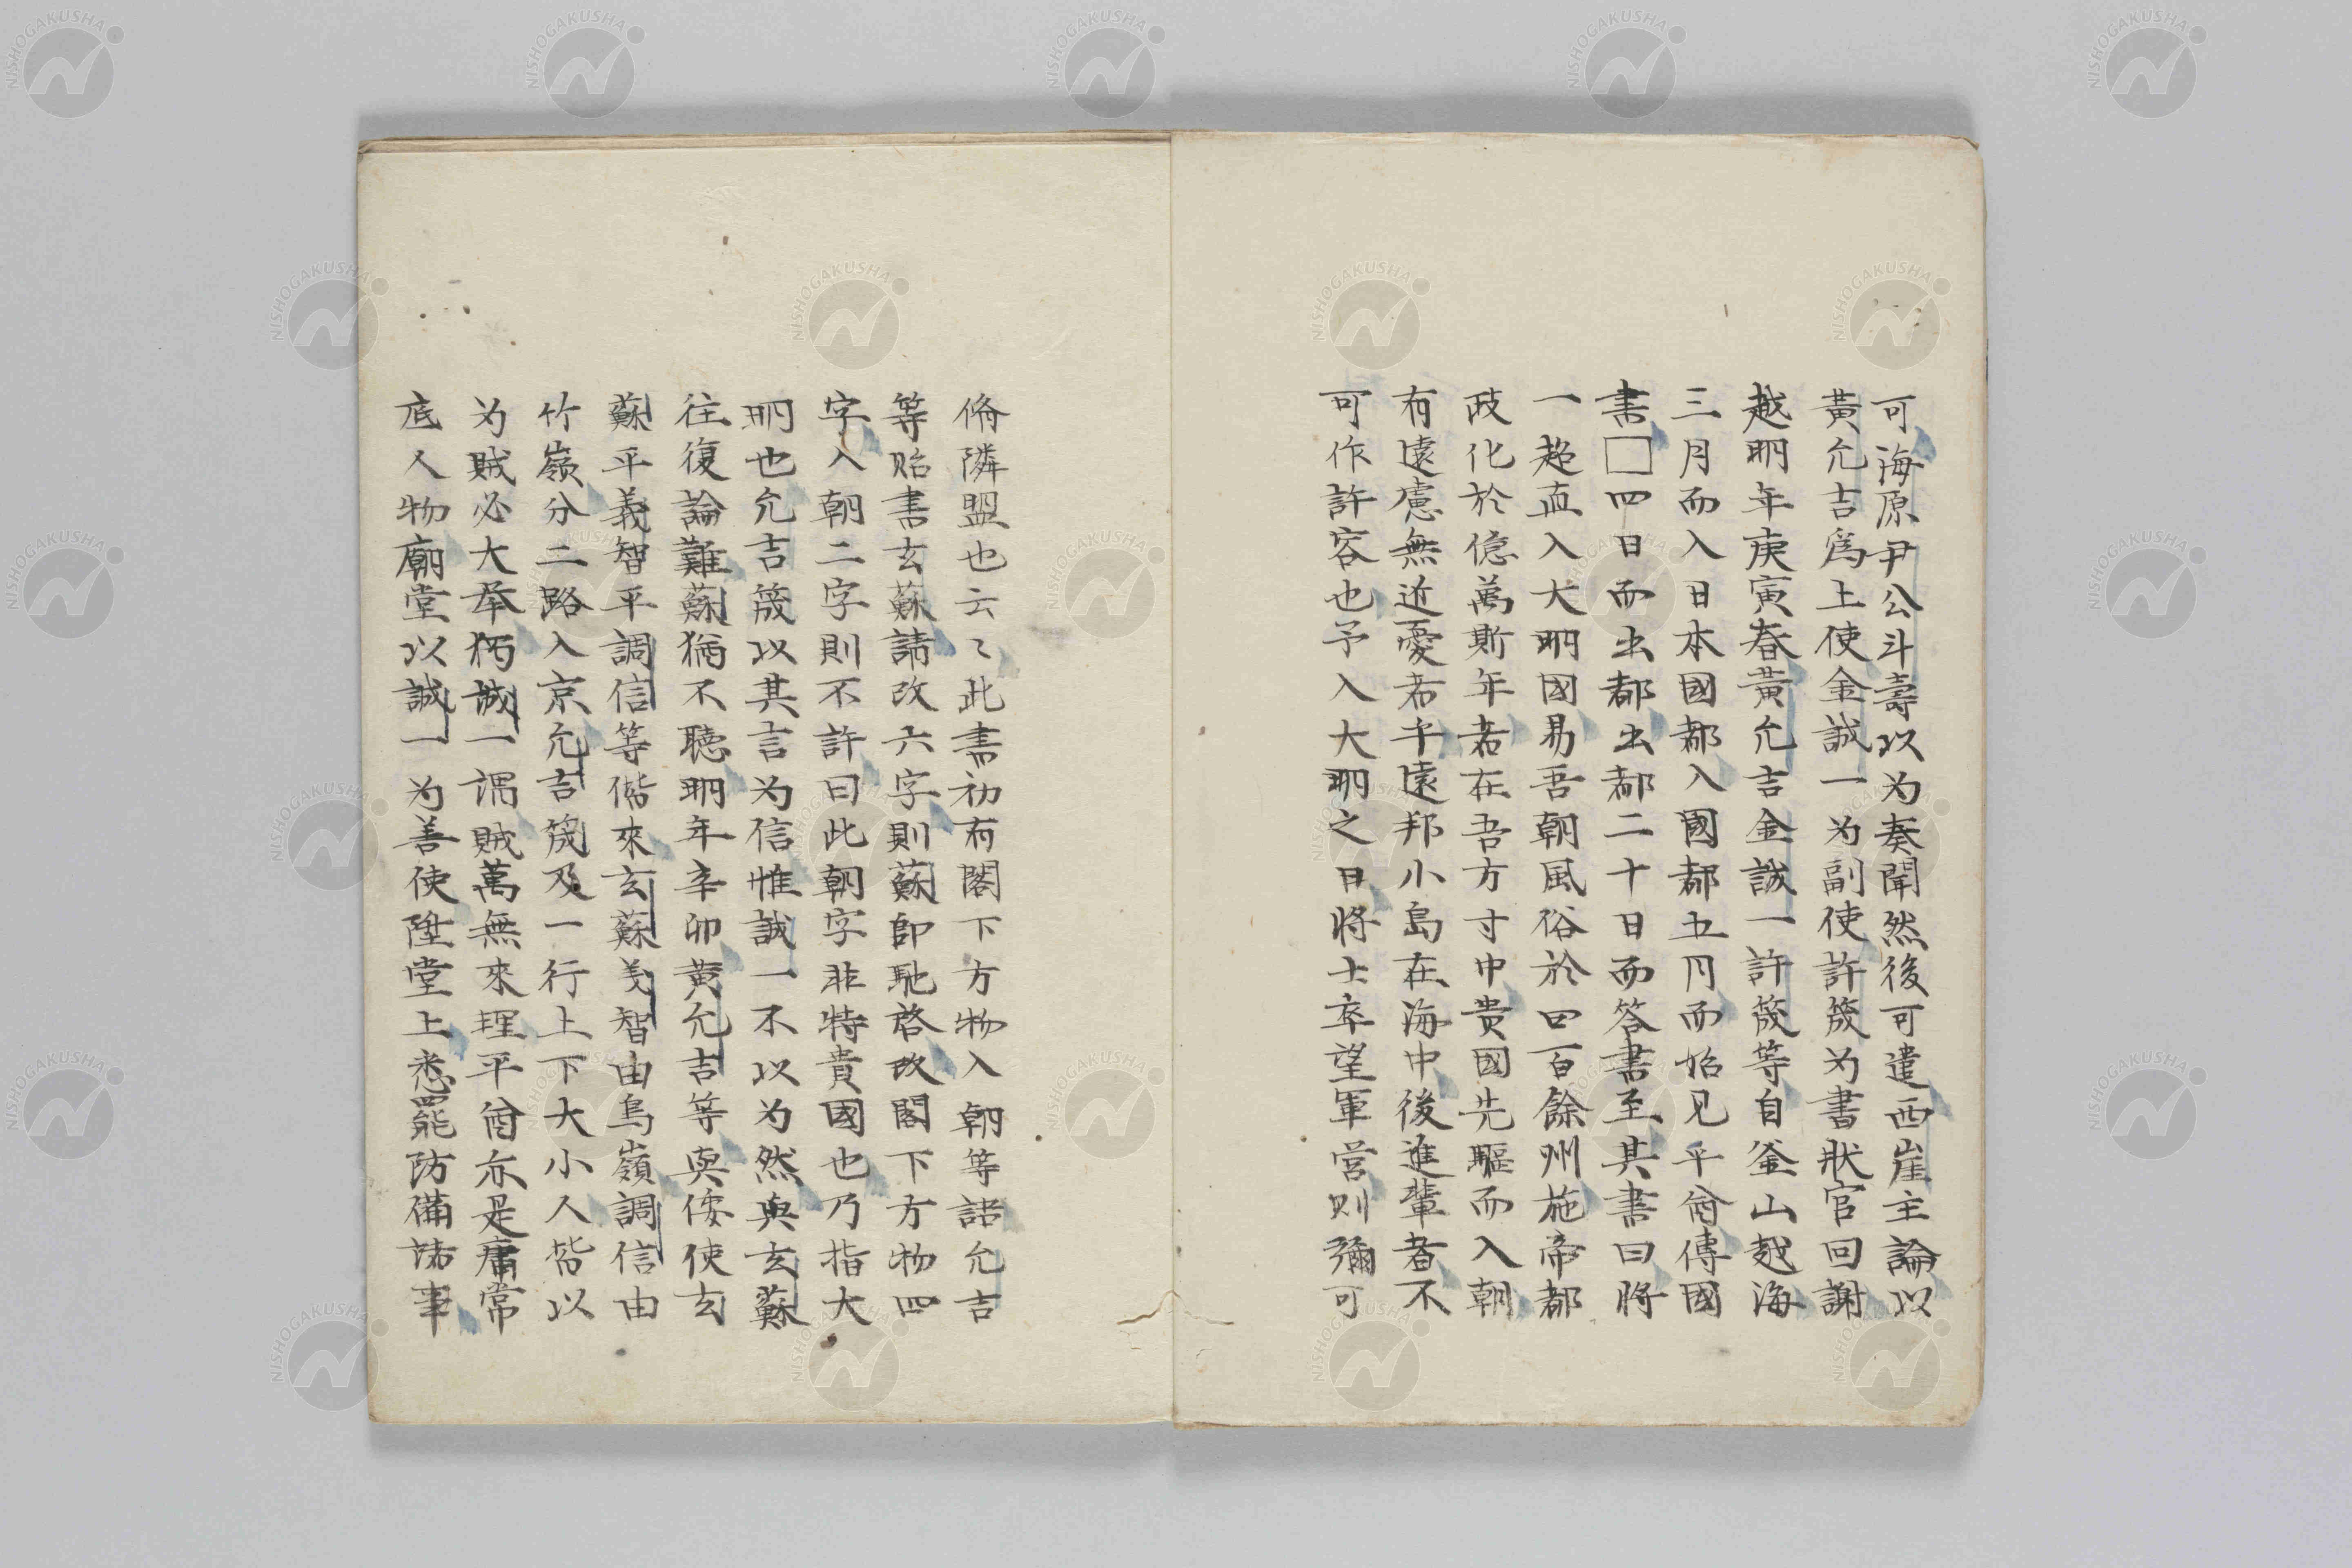 可海原尹公斗壽以为奏聞然後可遣西崖主論以
黃允吉爲上使金誠一为副使許筬为書狀官回謝
越明年庚寅春黃允吉金誠一許筬等自釜山越海
三月而入日本國都入國都五月而始見平酋傳國
書□四日而出都出都二十日而答書至其書曰将
一超直入大明國易吾朝風俗於四百餘州施帝都
政化於億萬斯年者在吾方寸中贵國先驅而入朝
有遠慮無近憂者乎遠邦小島在海中後進輩者不
可作許容也予入大明之日將士卒望軍営则彌可
脩隣盟也云〻此書初有閣下方物入朝等語允吉
等贻書玄蘇請改六字則蘇即馳啓改閣下方物四
字入朝二字則不許曰此朝字非特貴國也乃指大
明也允吉筬以其言为信惟誠一不以为然與玄蘇
往復論難蘇猶不聽明年辛卯黃允吉等與倭使玄
蘇平義智平調信等偕來玄蘇義智由鳥嶺調信由
竹嶺分二路入京允吉筬及一行上下大小人皆以
为賊必大举独誠一謂賊萬無來理平酋亦是庸常
底人物廟堂以誠一为善使陞堂上悉罷防備諸事